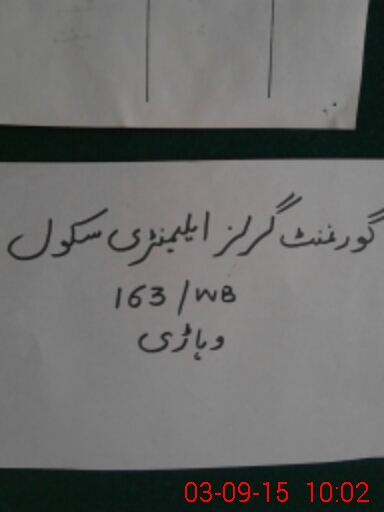 گورنمنٹ گرلز ایلیمنٹری سکول
163/WB
وہاڑی
03-09-15 10:02